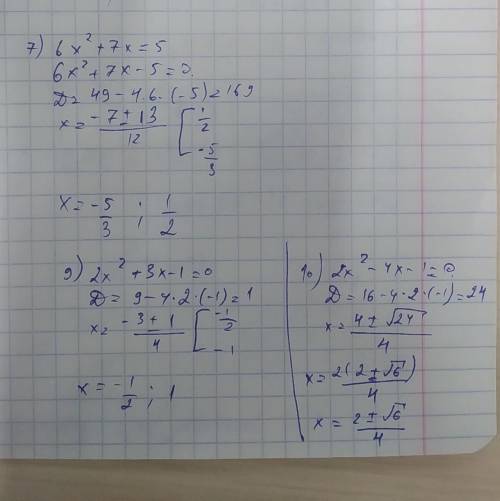 7) 6x² + 7x = 5
6x² + 7x - 5 = 0.
D = 49 - 4·6·(-5) = 169
x = (-7 ± 13)/12 [ 1/2
-5/3
x = -5/3 ; 1/2
9) 2x² + 3x - 1 = 0
D = 9 - 4·2·(-1) = 1
x = (-3 ± 1)/4 [ -1/2
-1
x = -1/2 ; 1
10) 2x² - 4x - 1 = 0.
D = 16 - 4·2·(-1) = 24
x = (4 ± √24)/4
x = 2(2 ± √6)/4
x = (2 ± √6)/4